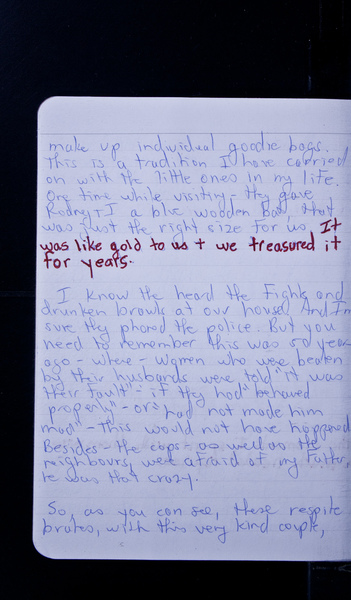 make up individual goodie bags.
This is a tradition I have carried
on with the little ones in my life.
One time while visiting - they gave
Rodney + I a blue wooden that
was just the right size for us. It
was like gold to us + we treasured it
for years.
I know the heard the fights and
drunken brawls at our house And I'm
sure they phoned the police. But you
need to remember this was 50 years
ago - where - women who were beaten
by their husbands were told "it was
their fault" - if they had "behaved
properly" - or "had not made him
mad" - this would not have happened
Besides - the cops - as well as the
neighbours, were afraid of my Father,
he was that crazy.
So, as you can see, these respite
brakes, with this very kind couple,